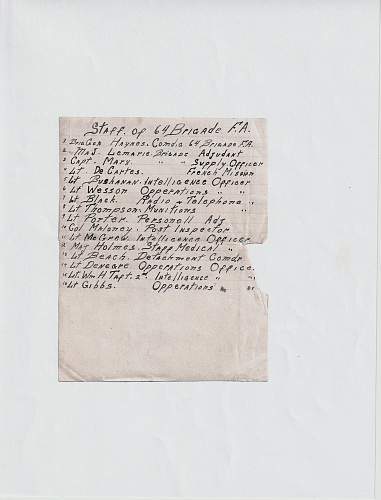 Staff of 64 Brigade F.A.
1 Brig Gen Haynes. Comdg. 64 Brigade F.A.
2 Maj. Lemaric. Brigade Adjudant
3 Capt. Marx. " " Supply Officer
4 Lt. De Cartes. French Mission
5 Lt Buchanan. Intelligence Officer
6 Lt Wesson Opperations " "
7 Lt Black. Radio + Telephone "
8 Lt Thompson. Munitions "
9 Lt Porter. Personell Adj
10 Col Maloney. Post Inspector
11 Lt McGrew. Intelligence Officer
12 Maj Holmes. Staff Medical "
13 Lt Beach. Detachment Comdr
14 Lt Denegre Opperations Office.
15 Lt. Wm H Taft. 2nd. Intelligence " "
16 Lt Gibbs. Opperations " "